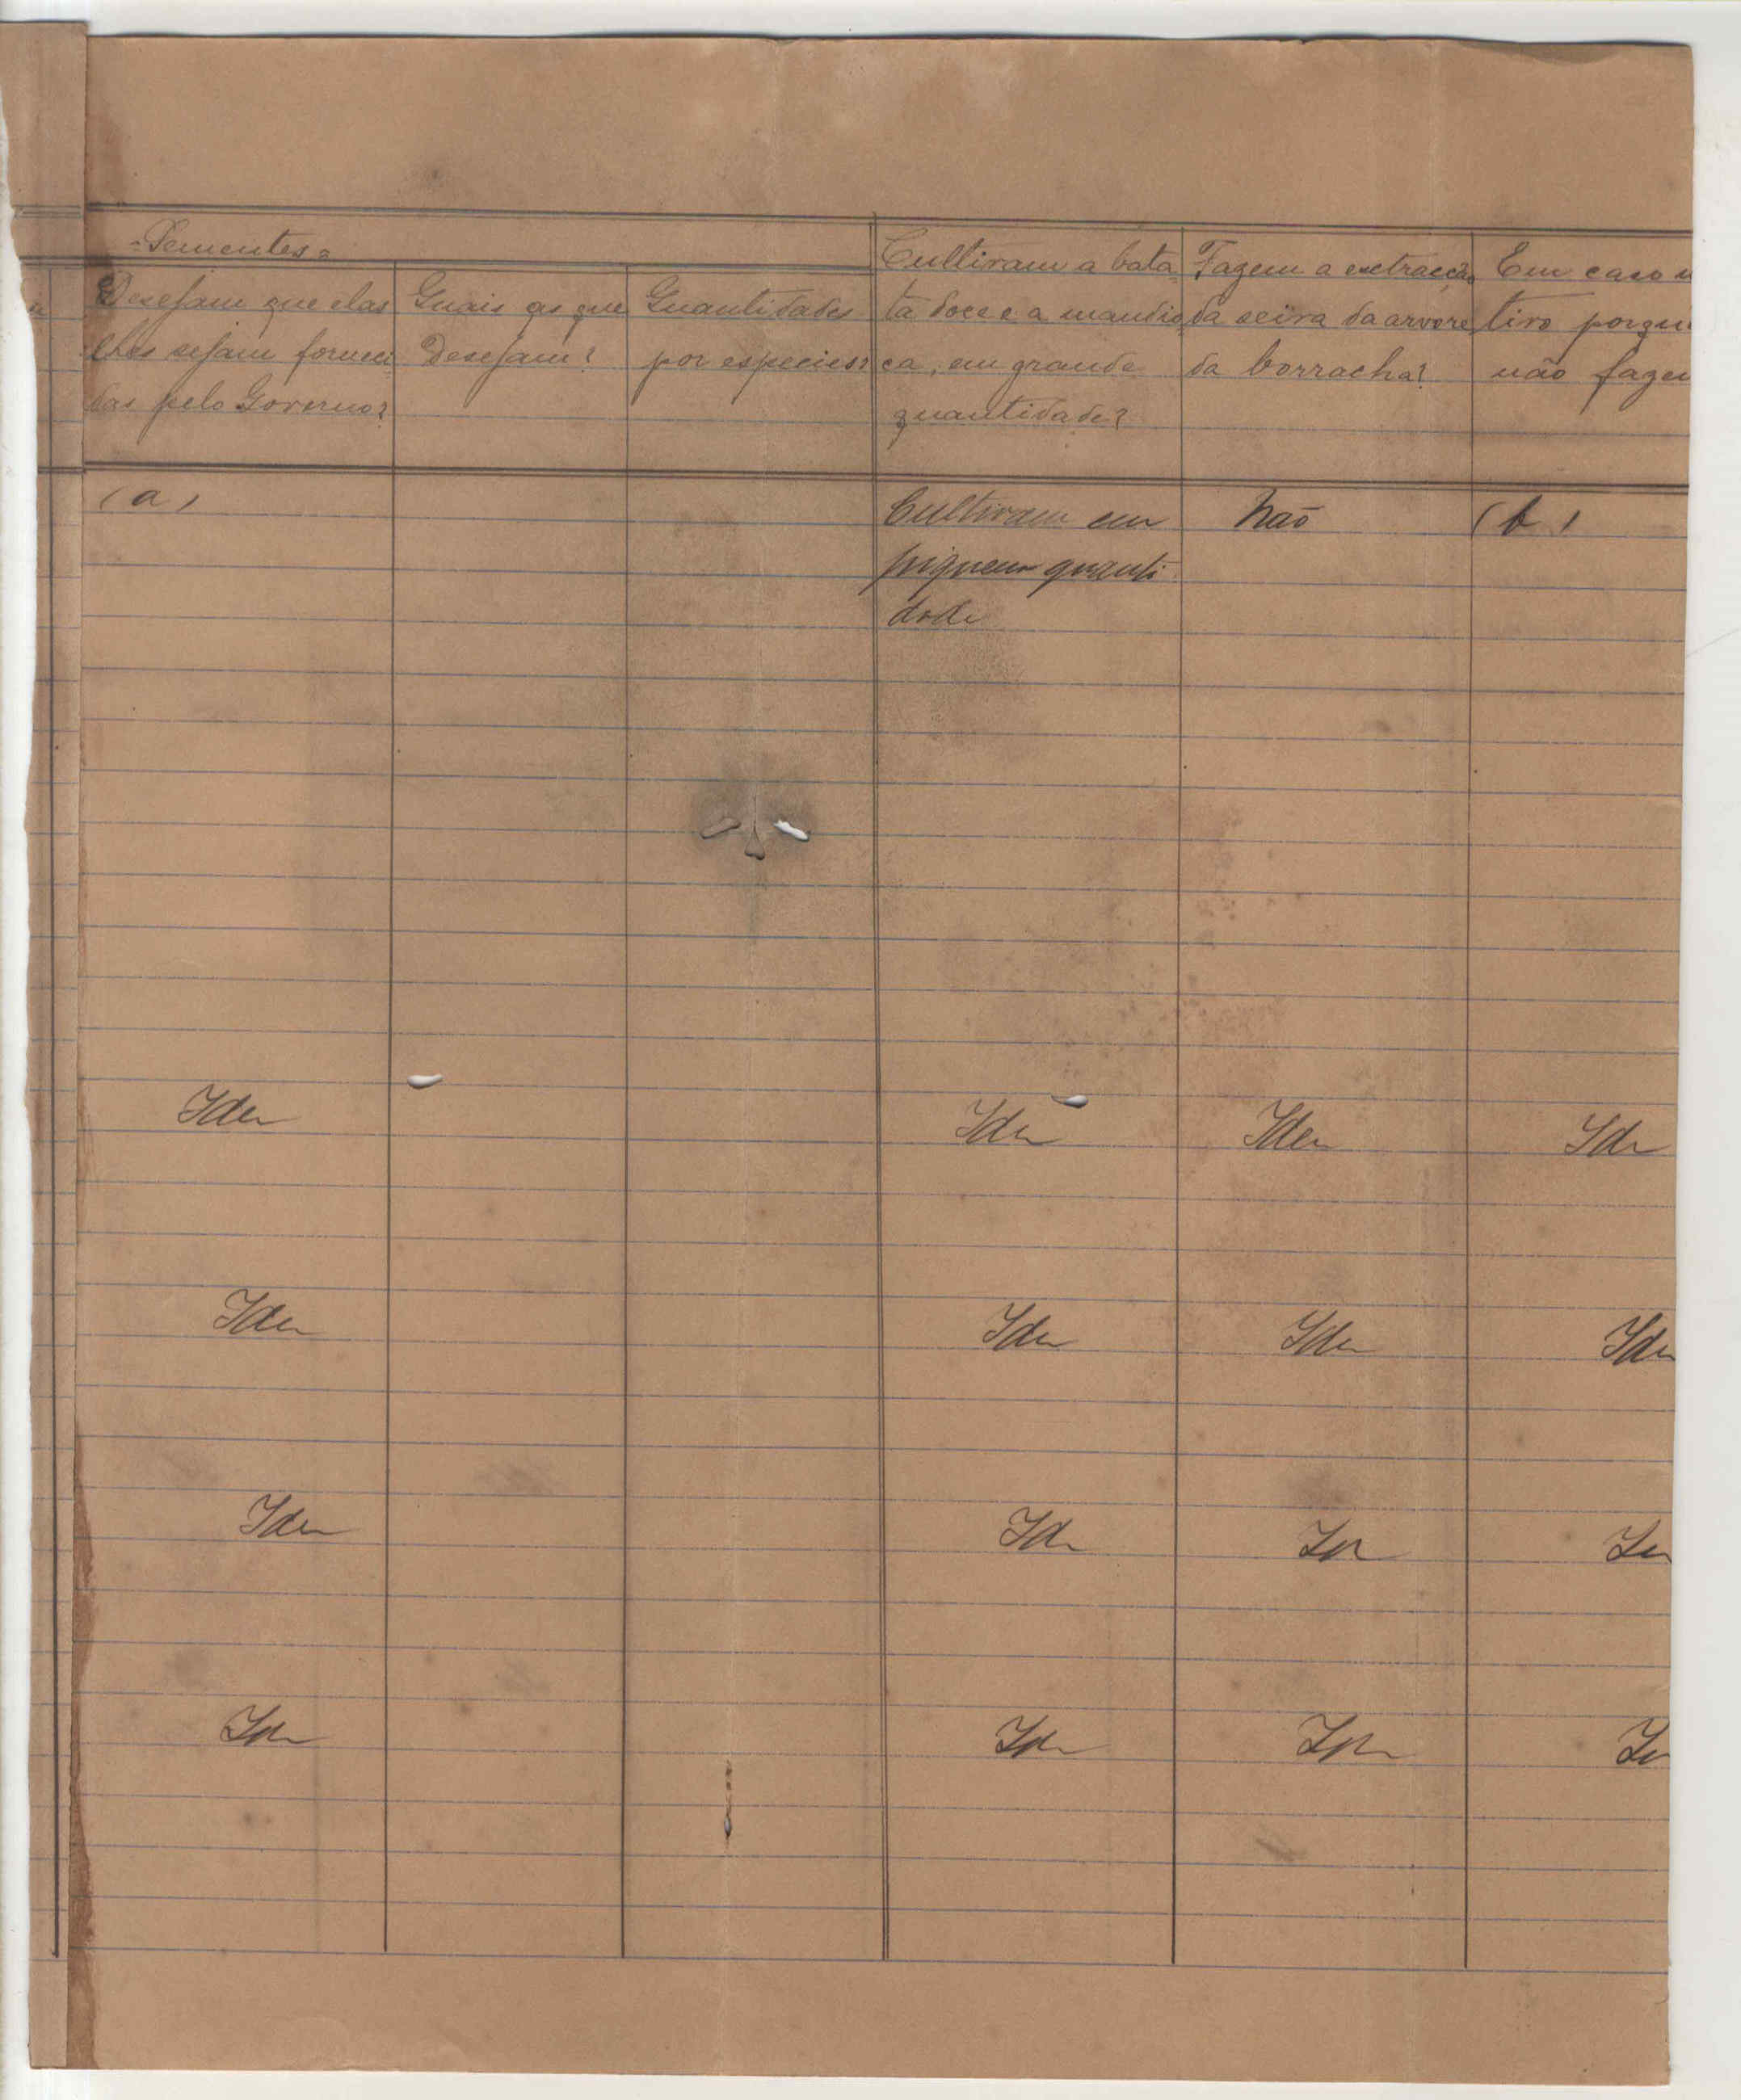 =Sementes=
Desejam que elas
lhes sejam forneci
das pelo Governo?
Quais as que
Desejam?
Quantidades
por especies?
Cultivam a bata
ta doce e a mandio
ca, em grande
quantidade?
Fazem a extracção
da seiva da arvore
da borracha?
Em caso n
tivo porqu
não fazem
(a)
Cultivam em
piquena quanti
dade
Não
(b)
Idem Idem Idem Idem
Idem Idem Idem Idem
Idem Idem Idem Idem
Idem Idem Idem Idem